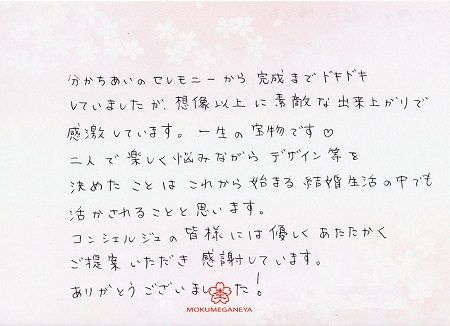 分かちあいのセレモニーから完成までドキドキ
していましたが、想像以上に素敵な出来上がりで
感激しています。一生の宝物です♡
二人で楽しく悩みながらデザイン等を
決めたことはこれから始まる結婚生活の中でも
活かされることと思います。
コンシェルジュの皆様には優しくあたたかく
ご提案いただき感謝しています。
ありがとうございました!
MOKUMEGANEYA